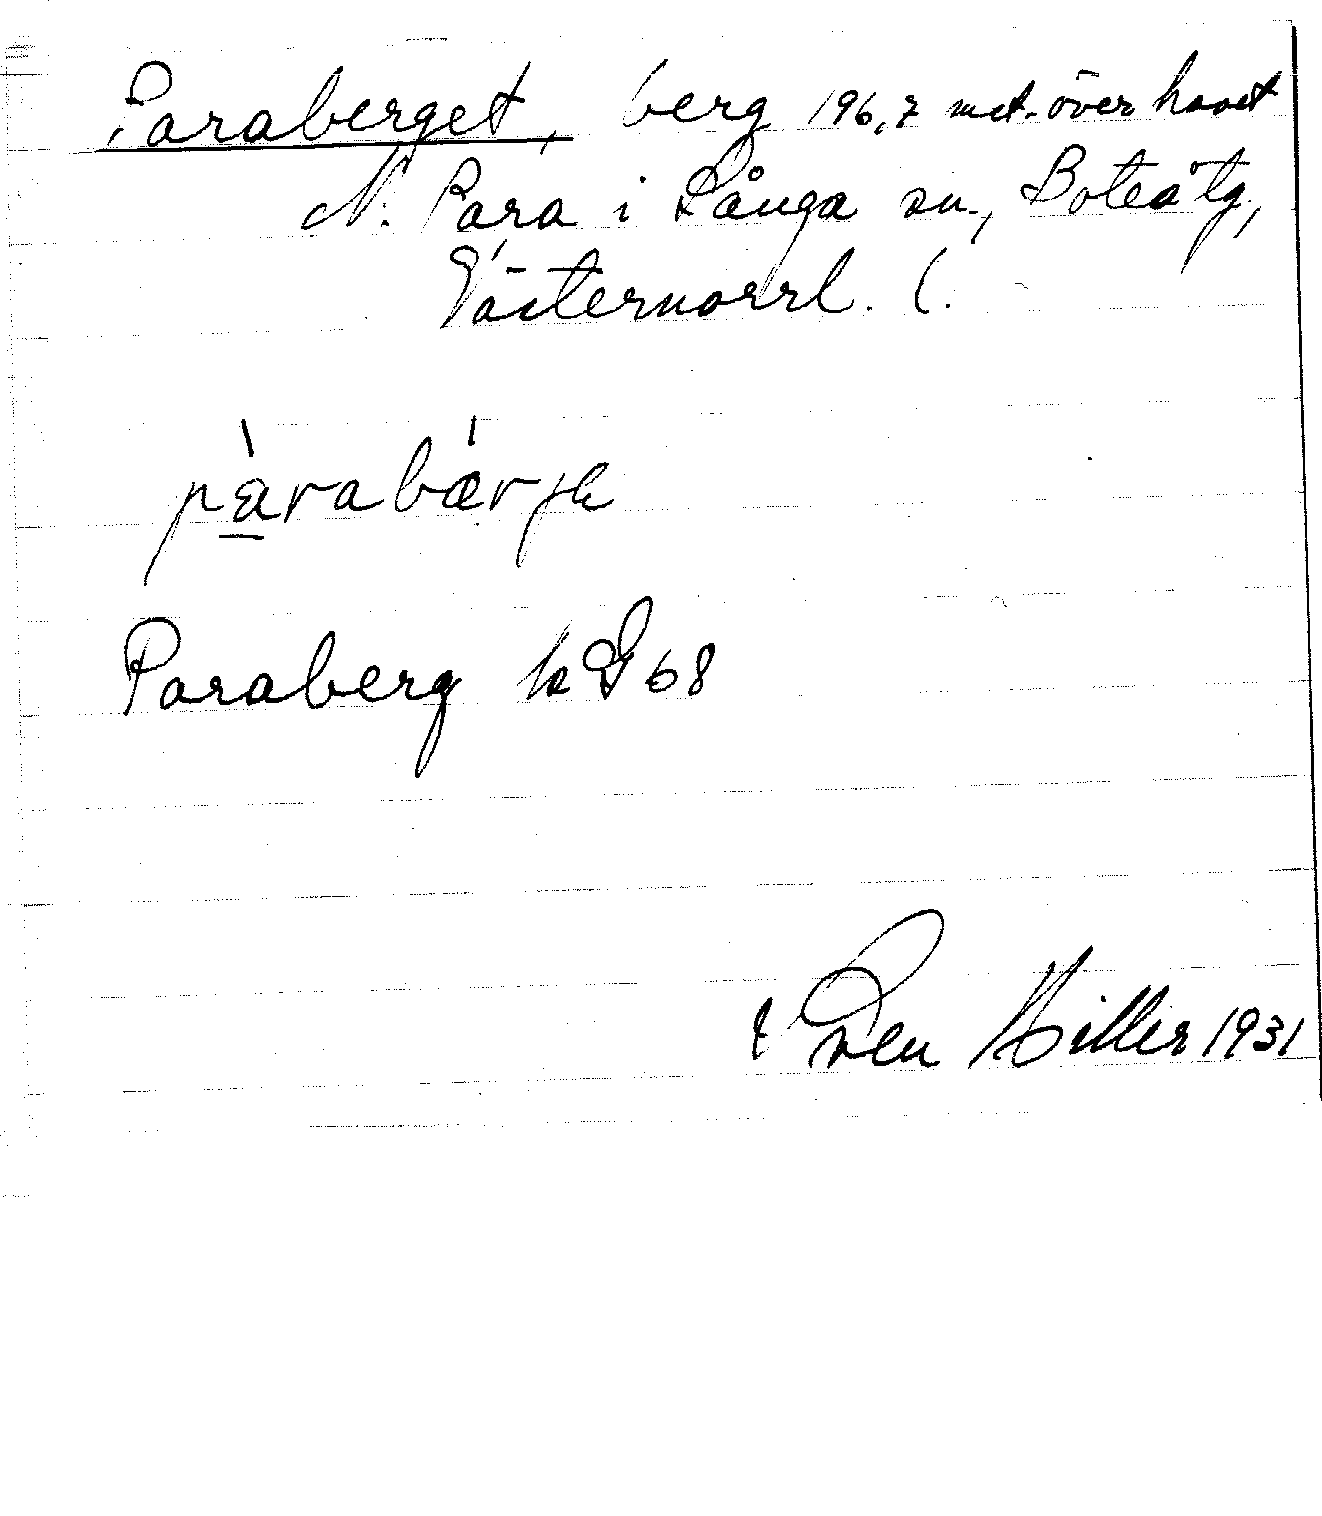 Paraberget, berg 196,7 met. över havet
N. Para i Långa sn, Boteå tg,
Västernorrl. l.
pàrabárje
Paraberg k G 68
Sven Hiller 1931